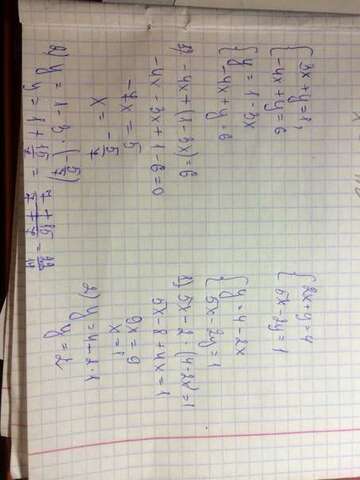 { 3x + y = 1,
-4x + y = 6
{ y = 1 - 3x
-4x + y = 6
1) -4x + (1 - 3x) = 6
-4x - 3x + 1 - 6 = 0
-7x = 5
x = -5/7
2) y = 1 - 3 · (-5/7)
y = 1 + 15/7 =
{ 2x + y = 4
5x - 2y = 1
{ y = 4 - 2x
5x - 2y = 1
1) 5x - 2 · (4 - 2x) = 1
5x - 8 + 4x = 1
9x = 9
x = 1
2) y = 4 - 2 · 1
y = 2